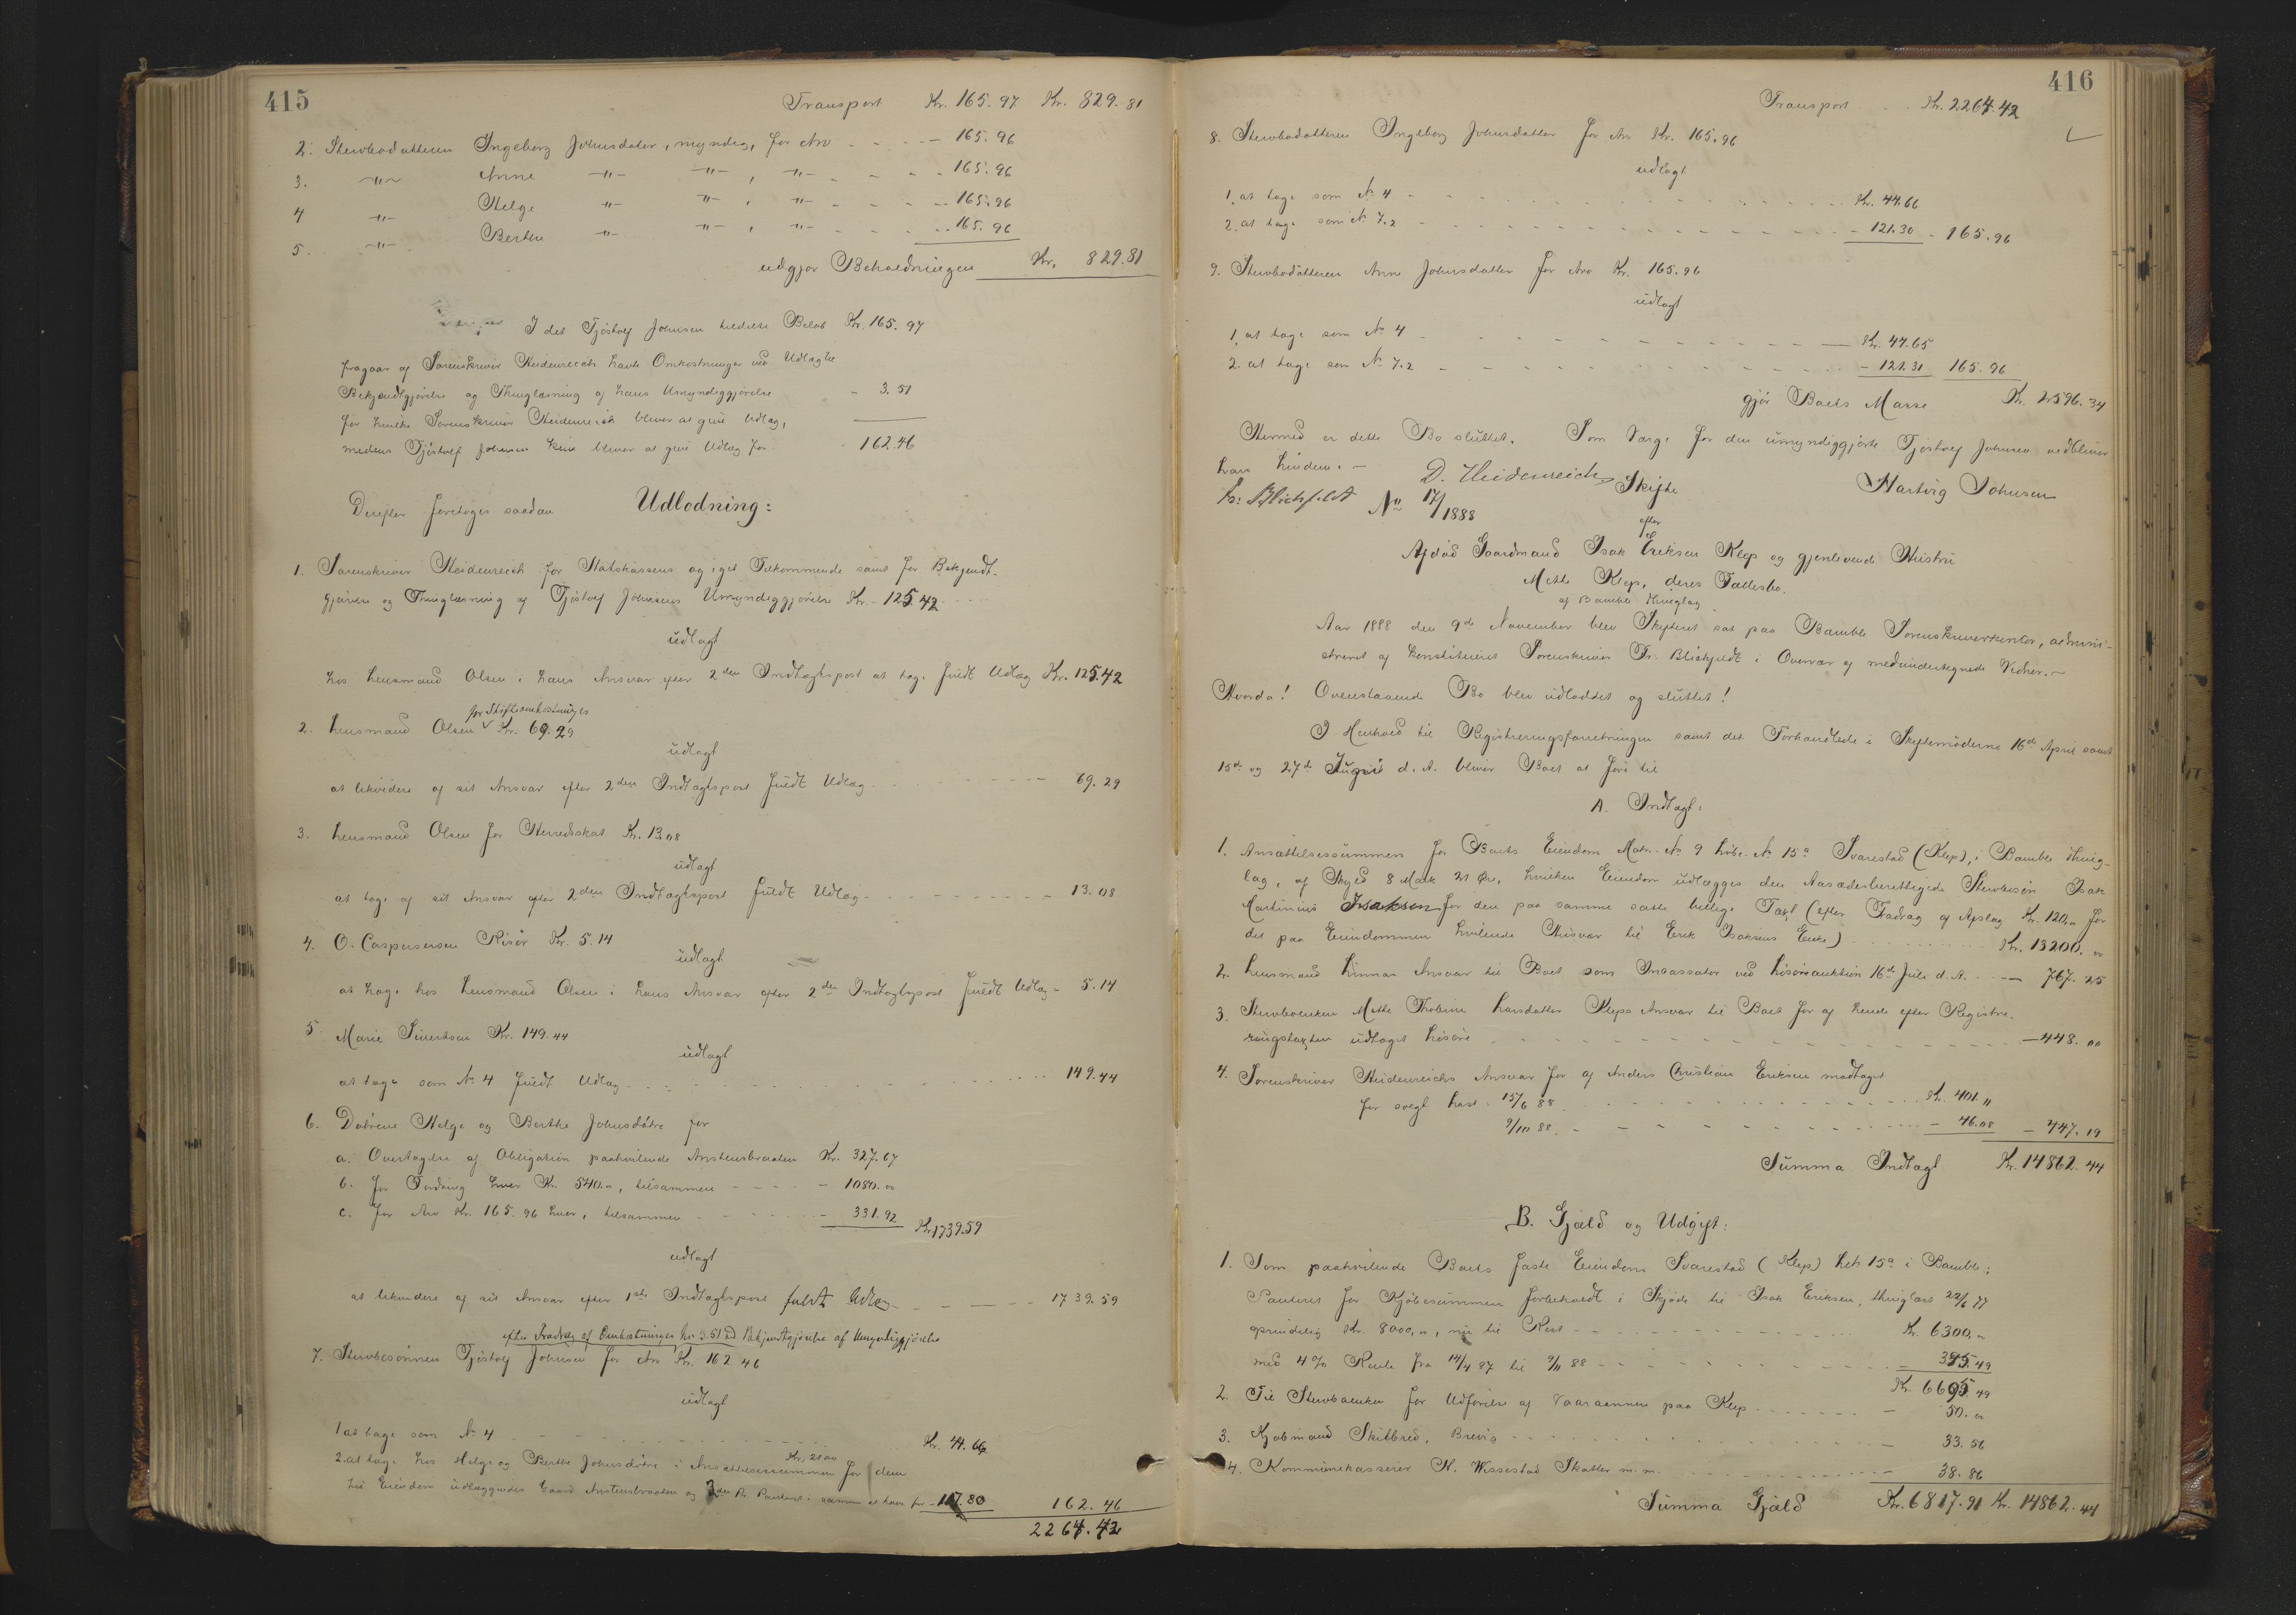 415
Transport Kr. 165.97 Kr. 829.81
2. Stervbodatteren Ingeborg Johnsdatter, myndig, for Arv - - - - 165.96
3. -"- Anne -"- -"-, -"- - - - - 165.96
4 -"- Helge -"- -"-, -"- - - - - 165.96
5. -"- Berthe -"- -"-, -"- - - - - 165.96
udgjør Beholdningen Kr. 829.81
I det Tjøstolf Johnsen tildelte Beløb Kr. 165.97
fragaar af Sorenskriver Heidenreich havte Omkostninger ved Udlagte
Bekjendtgjørelse og Thinglæsning af hans Umyndiggjørelse - 3.51
for hvilke Sorenskriver Heidenreich bliver at give Udlæg,
medens Tjøstolf Johnsen kun bliver at give Udlæg for 162.46
Derefter foretoges saadan Udlodning:
1. Sorenskriver Heidenreich for Statskassens og eget Tilkommende samt for Bekjendt-
gjørelse og Thinglæsning af Tjøstolf Johnsens Umyndiggjørelse Kr. 125.42
udlagt
hos Lensmand Olsen i hans Ansvar efter 2den Indtægtspost at tage fuldt Udlæg Kr. 125.42
2. Lensmand Olsen for Skifteomkostninger Kr. 69.29
udlagt
at likvidere af sit Ansvar efter 2den Indtægtspost fuldt Udlæg - - - 69.29
3. Lensmand Olsen for Herredsskat Kr. 13.08
udlagt
at tage af sit Ansvar efter 2den Indtægtspost fuldt Udlæg - - - 13.08
4. O. Caspersersen Risør Kr. 5.14
udlagt
at tage hos Lensmand Olsen i hans Ansvar efter 2den Indtægtspost fuldt Udlæg - 5.14
5. Marie Sivertsen Kr. 149.44
udlagt
at tage som No 4 fuldt Udlæg - - - 149.44
6. Døtrene Helge og Berthe Johnsdøtre for
a. Overtagelse af Obligation paahvilende Anstensbraaten Kr. 327.67
b. for Fordring hver Kr. 540.00, tilsammen - - - - 1080.00
c. for Arv Kr. 165.96 hver, tilsammen - - - - 331.92 Kr. 1739.59
udlagt
at likvidere af sit Ansvar efter 1ste Indtægtspost fuldt Udlæg - - - 1739.59
efter Fradrag af Omkostninger Kr. 3.51 ved Bekjendtgjørelse af Umyndiggjørelse
7. Stervbosønnen Tjøstolf Johnsen for Arv Kr. 162.46
udlagt
1 at tage som No 4 - - - Kr. 44.66
2. at tage hos Helge og Berthe Johnsdøtre i Ansættelsessummen Kr. 2100 for den
til Eiendom udlæggendes Gaard Anstensbraaten og 2den Pr. Panteret i samme at have for - 117.80 162.46
2264.42
416
Transport - - Kr. 2264.42
8. Stervbodatteren Ingeborg Johnsdatter for Arv Kr. 165.96
udlagt
1. at tage som No 4 - - - Kr. 44.66
2. at tage som No 7.2 - - - 121.30 - 165.96
9. Stervbodatteren Anne Johnsdatter for Arv Kr. 165.96
udlagt
1. at tage som No 4 - - - Kr. 44.65
2. at tage som No 7.2 - - - 121.31 165.96
gjør Boets Masse Kr. 2596.34
Hermed er dette Bo sluttet. Som Værge for den umyndiggjorte Tjøstolf Johnsen vedbliver
Lars Linden. -
D. Heidenreich
Hartvig Johnsen
Fr: Blichfeldt
No 17/1888
Skifte
efter
Afdød Gaardmand Isak Eriksen Klep og gjenlevende Hustru
Mette Klep, deres Fællesbo.
af Bamble Thinglag
Aar 1888 den 9de November blev Skifteret sat paa Bamble Sorenskriverkontor, admini-
streret af konstitueret Sorenskriver Fr. Blichfeldt i Overvær af medundertegnede Vidner. -
Hvorda! Ovenstaaende Bo blev udloddet og sluttet!
I Henhold til Registreringsforretningen samt det Forhandlede i Skiftemøderne 16de April samt
15de og 27de Juni d. A. bliver Boet at føre til
A. Indtægt:
1. Ansættelsessummen for Boets Eiendom Matr. No 9 Løbe-No 15a Svarestad (Klep), i Bamble Thing-
lag, af Skyld 8 Mark 21 Øre, hvilken Eiendom udlægges den Aasædesberettigede Stervbosøn Isak
Martinius Isaksen for den paa samme satte billige Taxt (efter Fradrag af Afslag Kr. 120.- for
det paa Eiendommen hvilende Ansvar til Erik Isaksens Enke) - - - Kr. 13200.00
2. Lensmand Linnaas Ansvar til Boet som Incassator ved Løsøreauktion 16de Juli d. A. - - - 767.25
3. Stervboenken Mette Thobine Larsdatter Kleps Ansvar til Boet for af hende efter Registre-
ringstaxten udtaget Løsøre - - - 448.00
4. Sorenskriver Heidenreichs Ansvar for af Anders Christian Eriksen modtaget
for solgt Last 15/6 88 - - - Kr. 401.11
9/10 88. - - - 46.08 - 447.19
Summa Indtægt Kr. 14862.44
B. Gjæld og Udgift:
1. Som paahvilende Boets faste Eiendom Svarestad (Klep) Lb 15a i Bamble:
Panteret for Kjøbesummen forbeholdt i Skjøde til Isak Eriksen, thinglæst 22/6 77
oprindelig Kr. 8000.00, nu til Rest - - - Kr. 6300.00
med 4% Rente fra 14/4 87 til 9/11 88 - - - 395.49
Kr. 6695.49
2. Til Stervboenken for Udførelse af Vaaraannen paa Klep - - - 50.00
3. Kjøbmand Skilbred, Brevig - - - 33.56
4. Kommunekasserer N. Wissestad Skatter m. m. - - - 38.86
Summa Gjæld Kr. 6817.91 Kr. 14862.44